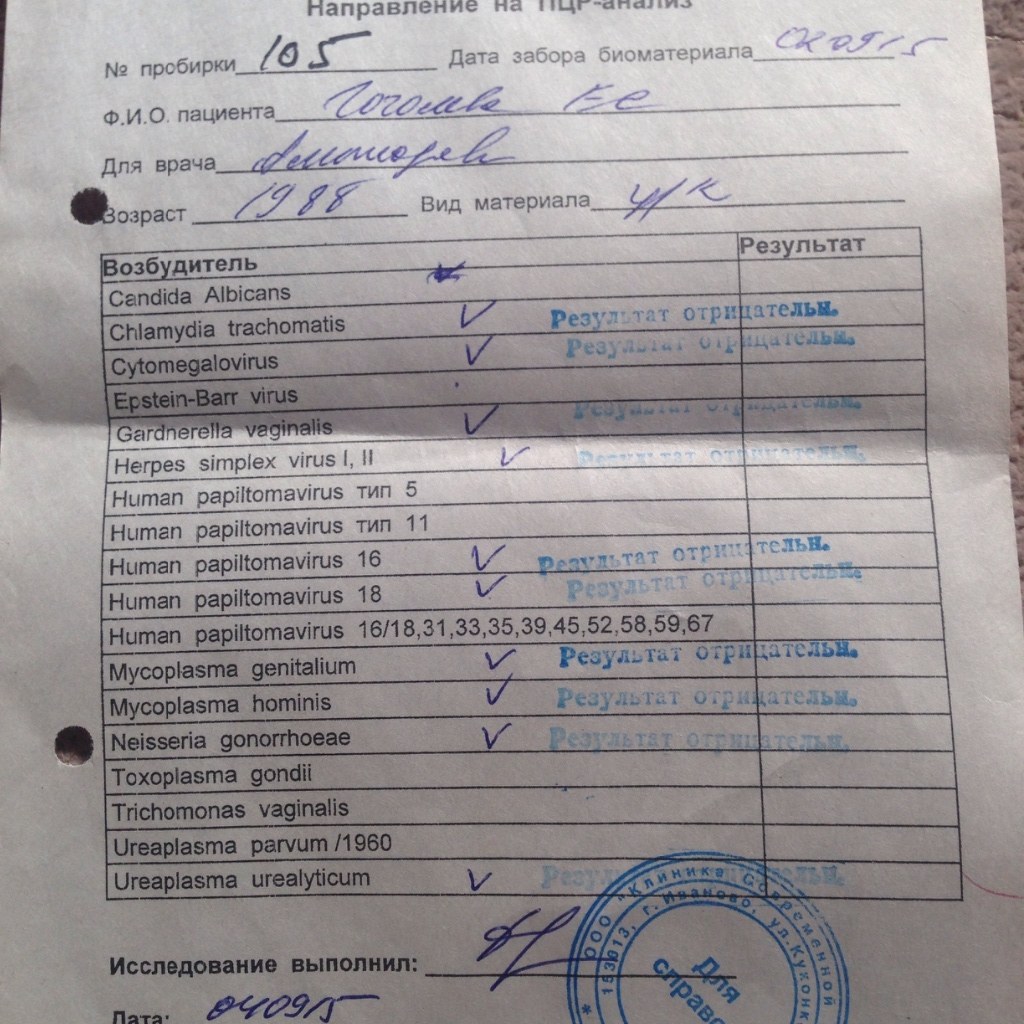 Направление на ПЦР-анализ
№ пробирки 105 Дата забора биоматериала 020915
Ф.И.О. пациента
Для врача
Возраст 1988 Вид материала ц/к
Возбудитель Результат
Candida Albicans
Chlamydia trachomatis ✓ Результат отрицательн.
Cytomegalovirus ✓ Результат отрицательн.
Epstein-Barr virus
Gardnerella vaginalis ✓ Результат отрицательн.
Herpes simplex virus I, II ✓ Результат отрицательн.
Human papiltomavirus тип 5
Human papiltomavirus тип 11
Human papiltomavirus 16 ✓ Результат отрицательн.
Human papiltomavirus 18 ✓ Результат отрицательн.
Human papiltomavirus 16/18,31,33,35,39,45,52,58,59,67
Mycoplasma genitalium ✓ Результат отрицательн.
Mycoplasma hominis ✓ Результат отрицательн.
Neisseria gonorrhoeae ✓ Результат отрицательн.
Toxoplasma gondii
Trichomonas vaginalis
Ureaplasma parvum /1960
Ureaplasma urealyticum ✓ Результат отрицательн.
Исследование выполнил:
Дата: 040915
* ООО "Клиника Современной
153013, г. Иваново, ул. Куконк
Для
справо